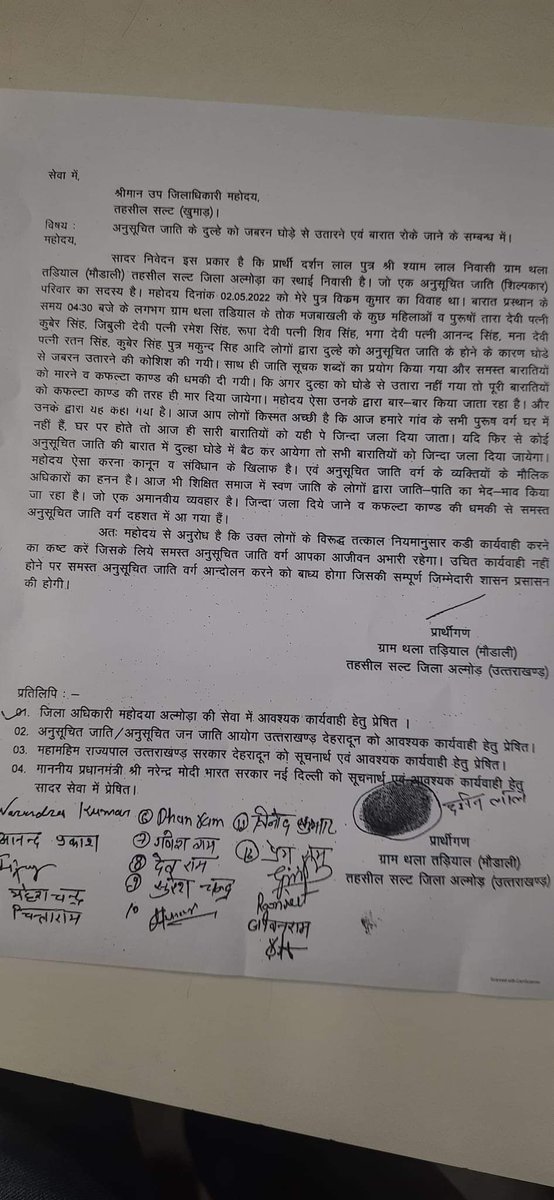 सेवा में,
श्रीमान उप जिलाधिकारी महोदय,
तहसील सल्ट (खुमाड़)।
विषय : अनुसूचित जाति के दुल्हे को जबरन घोड़े से उतारने एवं बारात रोके जाने के सम्बन्ध में।
महोदय,
सादर निवेदन इस प्रकार है कि प्रार्थी दर्शन लाल पुत्र श्री श्याम लाल निवासी ग्राम थला
तडियाल (मौडाली) तहसील सल्ट जिला अल्मोड़ा का स्थाई निवासी है। जो एक अनुसूचित जाति (शिल्पकार)
परिवार का सदस्य है। महोदय दिनांक 02.05.2022 को मेरे पुत्र विकम कुमार का विवाह था। बारात प्रस्थान के
समय 04:30 बजे के लगभग ग्राम थला तडियाल के तोक मजबाखली के कुछ महिलाओं व पुरूषों तारा देवी पत्नी
कुबेर सिंह, जिबुली देवी पत्नी रमेश सिंह, रूपा देवी पत्नी शिव सिंह, भगा देवी पत्नी आनन्द सिंह, मना देवी
पत्नी रतन सिंह, कुबेर सिंह पुत्र मकुन्द सिह आदि लोगों द्वारा दुल्हे को अनुसूचित जाति के होने के कारण घोडे
से जबरन उतारने की कोशिश की गयी। साथ ही जाति सूचक शब्दों का प्रयोग किया गया और समस्त बारातियों
को मारने व कफल्टा काण्ड की धमकी दी गयी। कि अगर दुल्हा को घोडे से उतारा नहीं गया तो पूरी बारातियों
को कफल्टा काण्ड की तरह ही मार दिया जायेगा। महोदय ऐसा उनके द्वारा बार–बार किया जाता रहा है। और
उनके द्वारा यह कहा गया है। आज आप लोगों किस्मत अच्छी है कि आज हमारे गांव के सभी पुरूष वर्ग घर में
नहीं हैं, घर पर होते तो आज ही सारी बारातियों को यही पे जिन्दा जला दिया जाता। यदि फिर से कोई
अनुसूचित जाति की बारात में दुल्हा घोडे में बैठ कर आयेगा तो सभी बारातियों को जिन्दा जला दिया जायेगा।
महोदय ऐसा करना कानून व संविधान के खिलाफ है। एवं अनुसूचित जाति वर्ग के व्यक्तियों के मौलिक
अधिकारों का हनन है। आज भी शिक्षित समाज में स्वण जाति के लोगों द्वारा जाति–पाति का भेद–भाव किया
जा रहा है। जो एक अमानवीय व्यवहार है। जिन्दा जला दिये जाने व कफल्टा काण्ड की धमकी से समस्त
अनुसूचित जाति वर्ग दहशत में आ गया हैं।
अतः महोदय से अनुरोध है कि उक्त लोगों के विरूद्व तत्काल नियमानुसार कडी कार्यवाही करने
का कष्ट करें जिसके लिये समस्त अनुसूचित जाति वर्ग आपका आजीवन अभारी रहेगा। उचित कार्यवाही नहीं
होने पर समस्त अनुसूचित जाति वर्ग आन्दोलन करने को बाध्य होगा जिसकी सम्पूर्ण जिम्मेदारी शासन प्रसासन
की होगी।
प्रार्थीगण
ग्राम थला तड़ियाल (मौडाली)
तहसील सल्ट जिला अल्मोड़ (उत्तराखण्ड)
प्रतिलिपि : –
01. जिला अधिकारी महोदया अल्मोड़ा की सेवा में आवश्यक कार्यवाही हेतु प्रेषित ।
02. अनुसूचित जाति/अनुसूचित जन जाति आयोग उत्तराखण्ड देहरादून को आवश्यक कार्यवाही हेतु प्रेषित।
03. महामहिम राज्यपाल उत्तराखण्ड सरकार देहरादून को सूचनार्थ एवं आवश्यक कार्यवाही हेतु प्रेषित।
04. माननीय प्रधानमंत्री श्री नरेन्द्र मोदी भारत सरकार नई दिल्ली को सूचनार्थ एवं आवश्यक कार्यवाही हेतु
सादर सेवा में प्रेषित।
Narendra Kumar ⑥ Dhan Ram ⑪ विनोद कुमार
दर्शन लाल
आनन्द प्रकाश ⑦ गणेश राम ⑫ प्रेम राम
⑧ देव राम
महेश चन्द्र ⑨ सुरेश चन्द्र
चिन्ताराम 10
जीवनराम
प्रार्थीगण
ग्राम थला तड़ियाल (मौडाली)
तहसील सल्ट जिला अल्मोड़ (उत्तराखण्ड)
Scanned with CamScanner